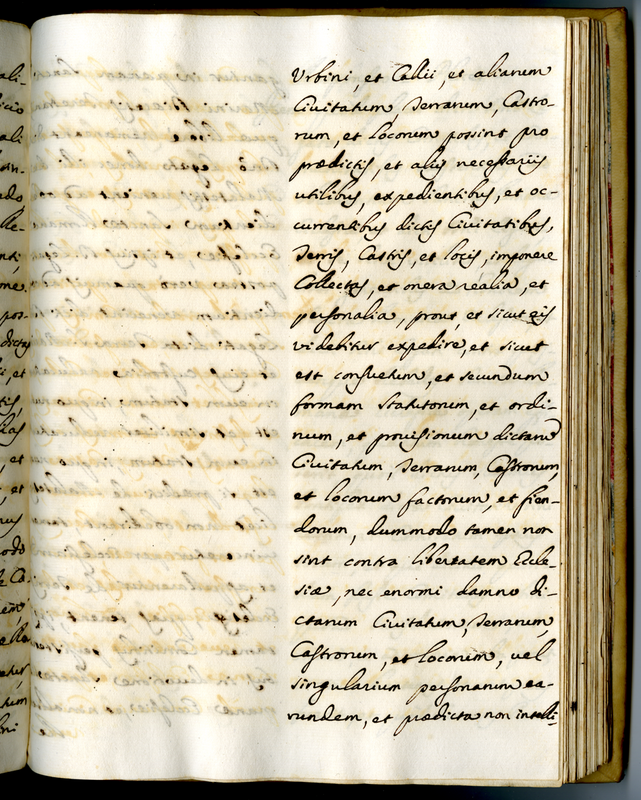 ali-
icio
ali
an-
ado
lle-
nti,
me.
pos-
dictas
i, et
tis,
lias
, et
, et
nus
odo
e Ca-
em
elle
etus,
tum
ni
Vrbini, et Callii, et aliarum
Ciuitatum, Terrarum, Castro-
rum, et locorum possint pro
prædictis, et alijs necessarijs
utilibus, expedientibus, et oc-
currentibus dictis Ciuitatibus,
Terris, Castris, et locis, imponere
Collectas, et onera realia, et
personalia, prout, et sicut eis
videbitur expedire, et sicut
est consuetum, et secundum
formam statutorum, et ordi-
num, et prouisionum dictarum
Ciuitatum, Terrarum, Castrorum,
et locorum factorum, et fien-
dorum, dummodo tamen non
sint contra libertatem Eccle-
siæ, nec enormi damno di-
ctarum Ciuitatum, Terrarum,
Castrorum, et locorum, vel
singularium personarum ea-
rundem, et prædicta non intelli-